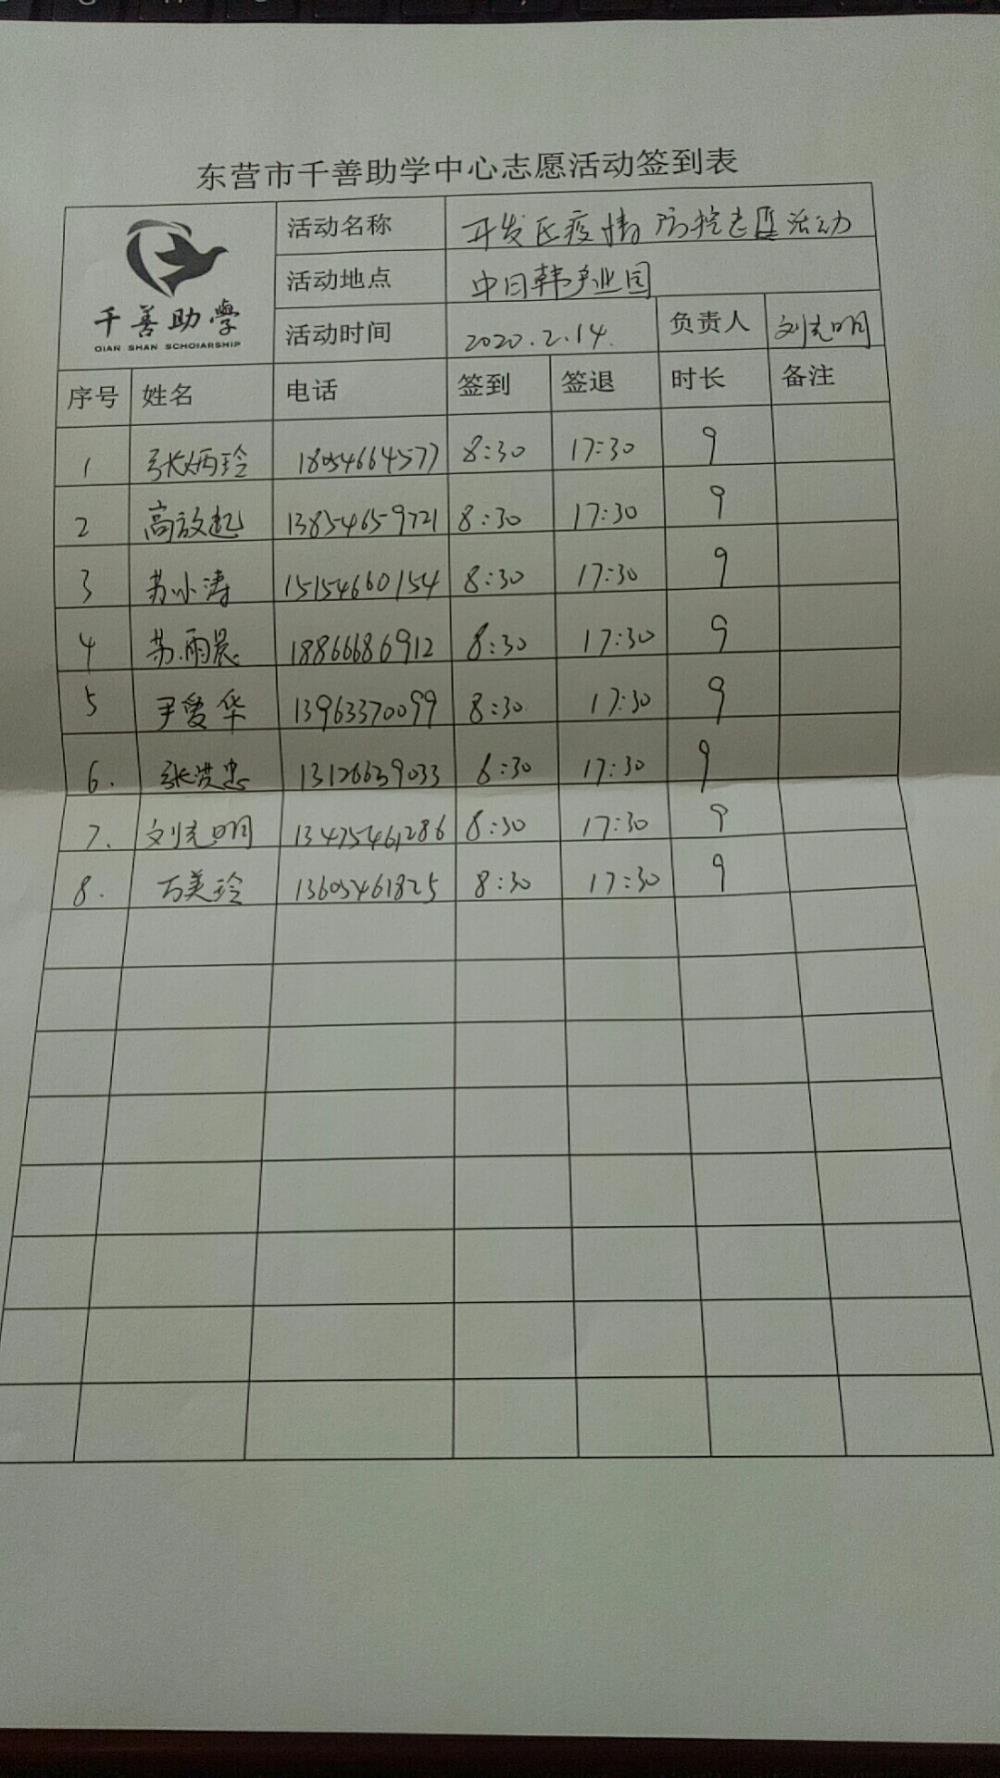 东营市千善助学中心志愿活动签到表
千善助學
QIAN SHAN SCHOIARSHIP
活动名称 开发区疫情防控志愿活动
活动地点 中日韩产业园
活动时间 2020.2.14. 负责人 刘光明
序号 姓名 电话 签到 签退 时长 备注
1 张炳玲 18054664577 8:30 17:30 9
2 高放起 13854659721 8:30 17:30 9
3 苏小涛 15154660154 8:30 17:30 9
4 苏雨晨 18866686912 8:30 17:30 9
5 尹爱华 13963370099 8:30 17:30 9
6. 张洪忠 13126639033 8:30 17:30 9
7. 刘光明 13475461286 8:30 17:30 9
8. 万美玲 13605461825 8:30 17:30 9